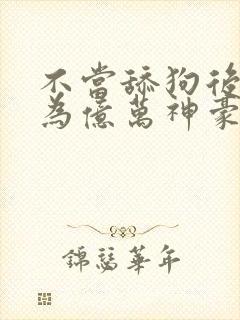 不當舔狗後
為億萬神豪
錦瑟華年